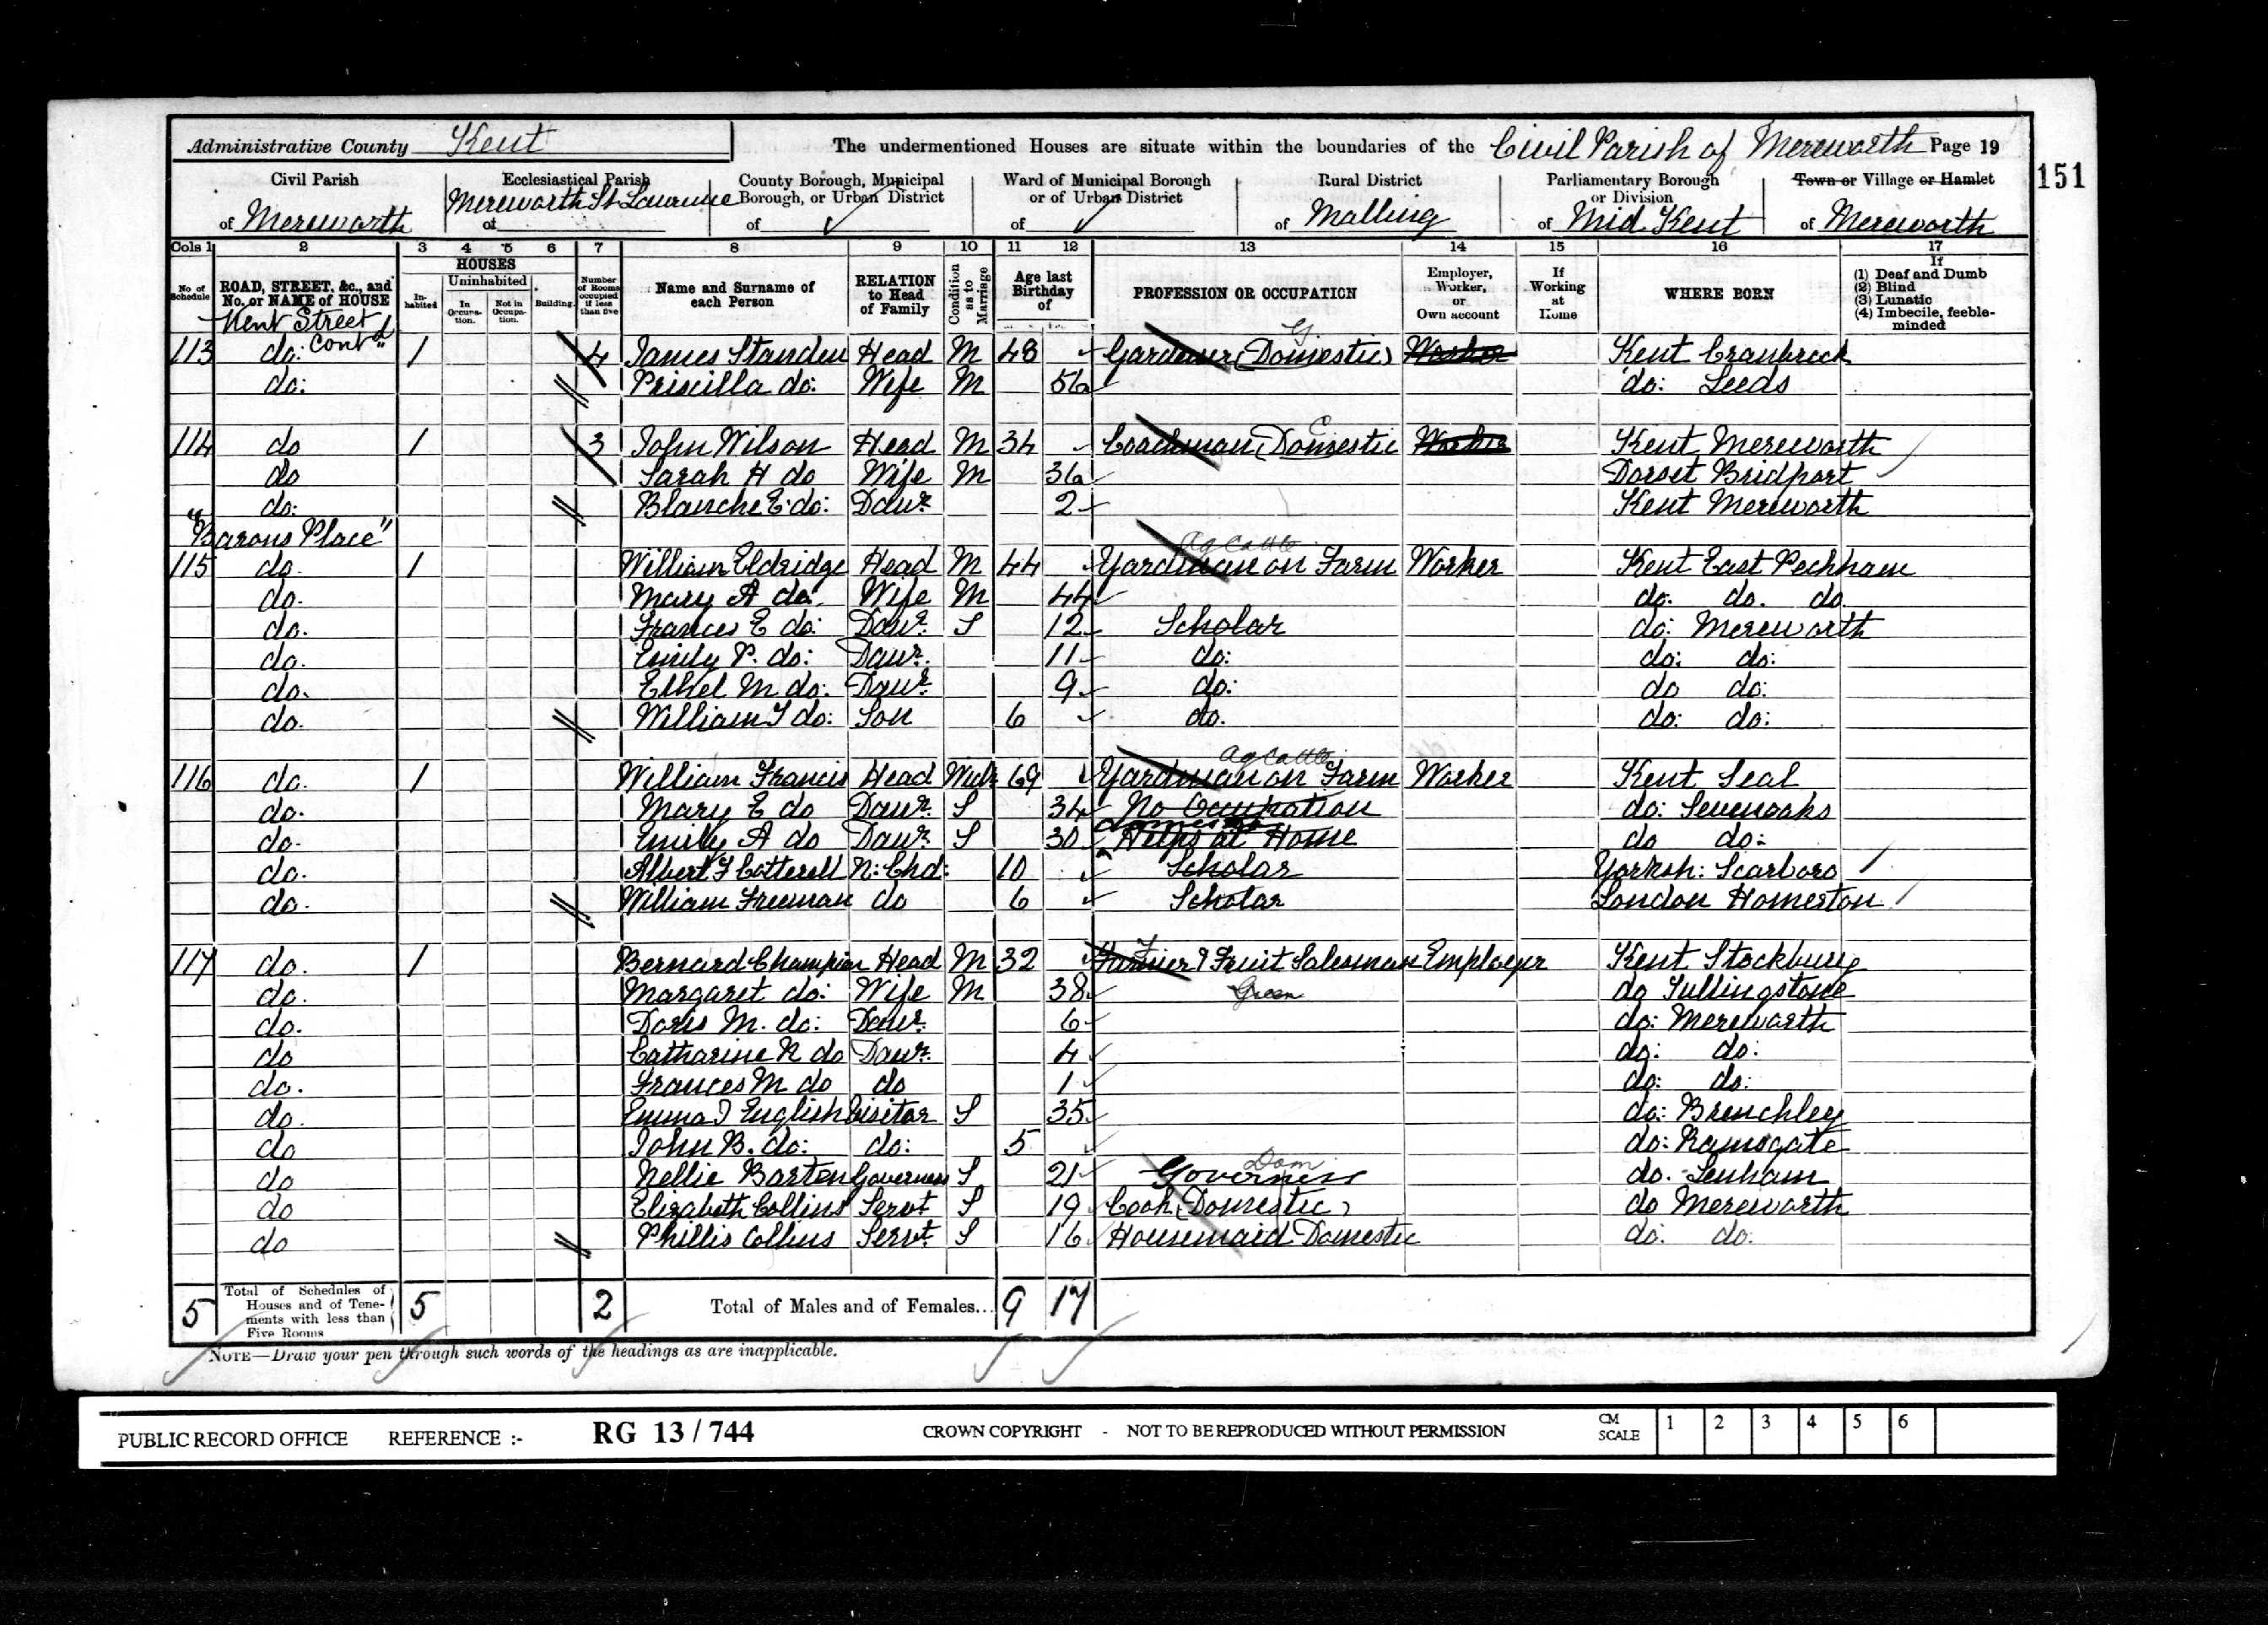 Administrative County Kent The undermentioned Houses are situate within the boundaries of the Civil Parish of Mereworth Page 19
151
Civil Parish of Mereworth
Ecclesiastical Parish of Mereworth St Lawrence
County Borough, Municipal Borough, or Urban District of
Ward of Municipal Borough or of Urban District of
Rural District of Malling
Parliamentary Borough or Division of Mid Kent
Town or Village or Hamlet of Mereworth
Cols 1 2 3 4 5 6 7 8 9 10 11 12 13 14 15 16 17
No of Schedule
ROAD, STREET, &c., and No. or NAME of HOUSE
HOUSES
Inhabited
Uninhabited
In Occupation.
Not in Occupation.
Building.
Number of Rooms occupied if less than five
Name and Surname of each Person
RELATION to Head of Family
Condition as to Marriage
Age last Birthday of
PROFESSION OR OCCUPATION
Employer, Worker, or Own account
If Working at Home
WHERE BORN
If
(1) Deaf and Dumb
(2) Blind
(3) Lunatic
(4) Imbecile, feeble-minded
Kent Street
Contd
113 do: 1 4 James Standen Head M 48 Gardener (Domestic) Worker Kent Cranbrook
do: Priscilla do: Wife M 56 do: Leeds
114 do 1 3 John Wilson Head M 34 Coachman (Domestic Worker Kent Mereworth
do Sarah H do Wife M 36 Dorset Bridport
do: Blanche E. do: Daur 2 Kent Mereworth
"Barons Place"
Ag Cattle
115 do. 1 William Eldridge Head M 44 Yardman on Farm Worker Kent East Peckham
do. Mary A do. Wife M 44 do. do. do
do. Frances E do: Daur. S 12 Scholar do: Mereworth
do. Emily P. do: Daur. 11 do: do: do:
do. Ethel M do: Daur. 9 do: do do:
do. William T do: Son 6 do. do: do:
Ag Cattle
116 do. 1 William Francis Head Widr 69 Yardman on Farm Worker Kent Seal
do. Mary E do Daur. S 34 No Occupation do: Sevenoaks
domestic
do. Emily A do Daur. S 30 Helps at Home do do:
do. Albert F Cotterell N: Chd: 10 Scholar Yorksh: Scarboro
do. William Freeman do 6 Scholar London Homerton
117 do. 1 Bernard Champion Head M 32 Farmer & Fruit Salesman Employer Kent Stockbury
do. Margaret do: Wife M 38 Green do Lullingstone
do. Doris M. do: Daur. 6 do: Mereworth
do Catharine N do Daur. 4 do: do:
do. Frances M do do 1 do: do:
do. Emma I English Visitor S 35 do: Brenchley
do John B. do: do: 5 do: Ramsgate
Dom
do Nellie Barten Governess S 21 Governess do. Lenham
do Elizabeth Collins Servt S 19 Cook (Domestic) do Mereworth
do Phillis Collins Servt. S 16 Housemaid Domestic do: do.
5 Total of Schedules of Houses and of Tenements with less than Five Rooms 5 2 Total of Males and of Females... 9 17
NOTE—Draw your pen through such words of the headings as are inapplicable.
PUBLIC RECORD OFFICE REFERENCE :- RG 13 / 744 CROWN COPYRIGHT - NOT TO BE REPRODUCED WITHOUT PERMISSION CM SCALE 1 2 3 4 5 6